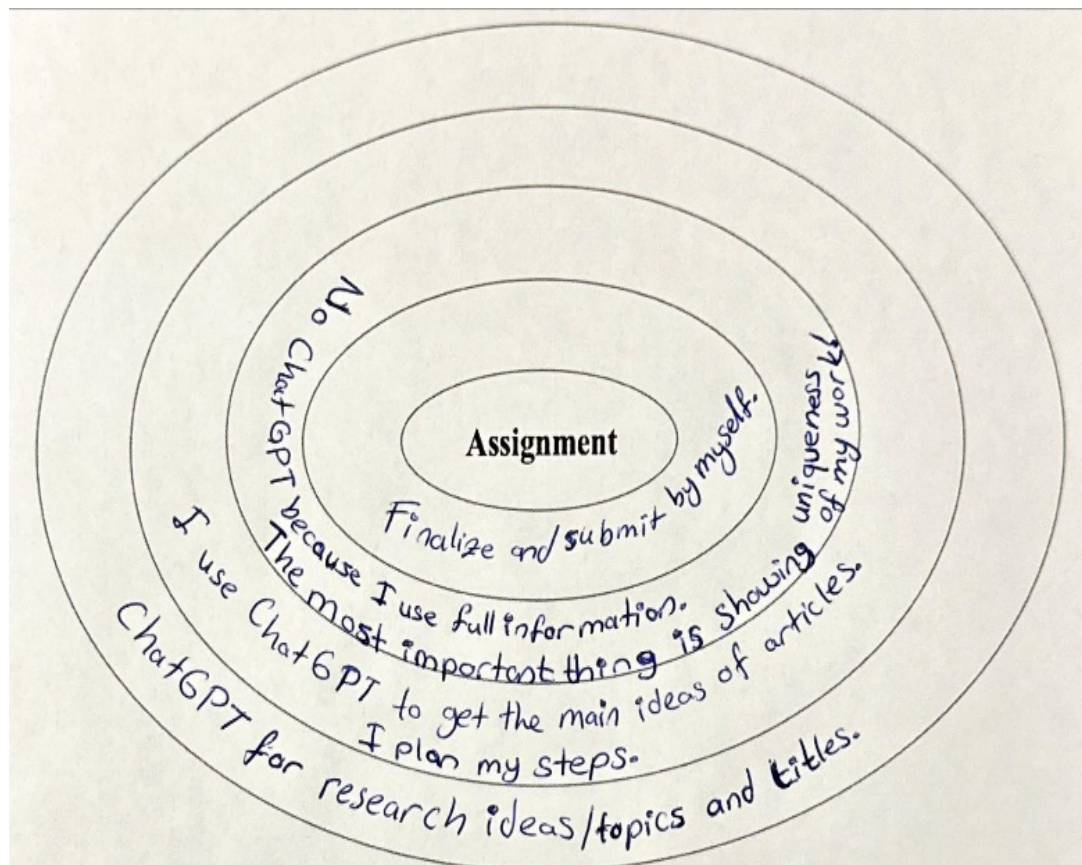 Assignment
Finalize and submit by myself.
No ChatGPT because I use full information.
The most important thing is showing uniqueness
of my work.
I use ChatGPT to get the main ideas of articles.
I plan my steps.
ChatGPT for research ideas/topics and titles.